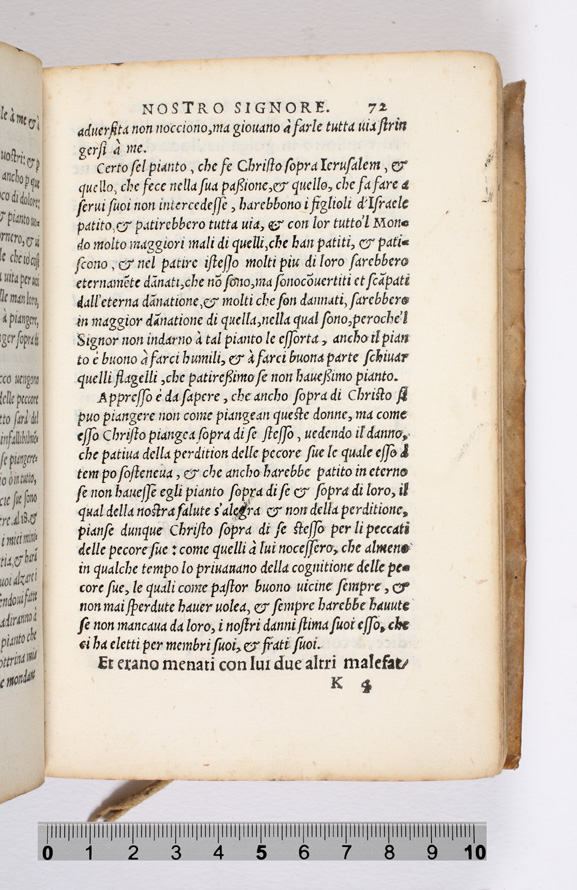 NOSTRO SIGNORE. 72
adversita non nocciono, ma giovano à farle tutta uia strin
gersi à me.
Certo sel pianto, che fe Christo sopra Ierusalem, &
quello, che fece nella sua passione, & quello, che fa fare a
serui suoi non intercedesse, harebbono i figlioli d'Israele
patito, & patirebbero tutta uia, & con lor tutto'l Mon-
do molto maggiori mali di quelli, che han patiti, & pati-
scono, & nel patire istesso molti piu di loro sarebbero
eternamẽte dãnati, che nõ sono, ma sonocõuertiti et scãpati
dall'eterna dãnatione, & molti che son dannati, sarebbero
in maggior dãnatione di quella, nella qual sono, peroche'l
Signor non indarno à tal pianto le essorta, ancho il pian
to è buono à farci humili, & à farci buona parte schiuar
quelli flagelli, che patiressimo se non hauessimo pianto.
Appresso è da sapere, che ancho sopra di Christo si
puo piangere non come piangean queste donne, ma come
esso Christo piangea sopra di se stesso, uedendo il danno,
che patiua della perdition delle pecore sue le quale esso à
tempo sosteneua, & che ancho harebbe patito in eterno
se non hauesse egli pianto sopra di se & sopra di loro, il
qual della nostra salute s'alegra & non della perditione,
pianse dunque Christo sopra di se stesso per li peccati
delle pecore sue: come quelli à lui nocessero, che almeno
in qualche tempo lo priuauano della cognitione delle pe-
core sue, le quali come pastor buono uicine sempre, &
non mai sperdute hauer uolea, & sempre harebbe hauute
se non mancaua da loro, i nostri danni stima suoi esso, che
ci ha eletti per membri suoi, & frati suoi.
Et erano menati con lui due altri malefat-
K 4
0 1 2 3 4 5 6 7 8 9 10